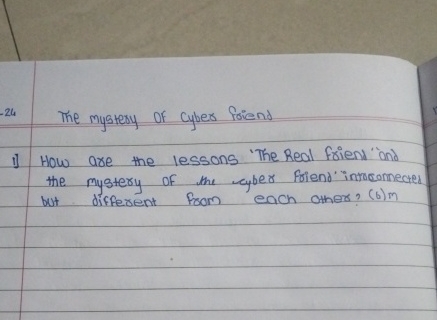 -24
The mystery of cyber friend
1] How are the lessons 'The Real friend' and
the mystery of the cyber friend' intraconnected
but different from each other? (6)m